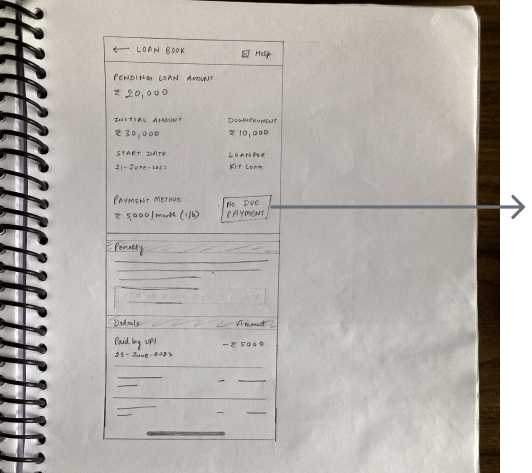 ← LOAN BOOK
Help
PENDING LOAN AMOUNT
₹ 20,000
INITIAL AMOUNT DOWNPAYMENT
₹ 30,000 ₹ 10,000
START DATE LOAN FOR
21-June-2023 Kit Loan
PAYMENT METHOD
₹ 5,000/month (1/6)
NO DUE
PAYMENT
Penalty
Details Amount
Paid by UPI -₹ 5000
23-June-2023